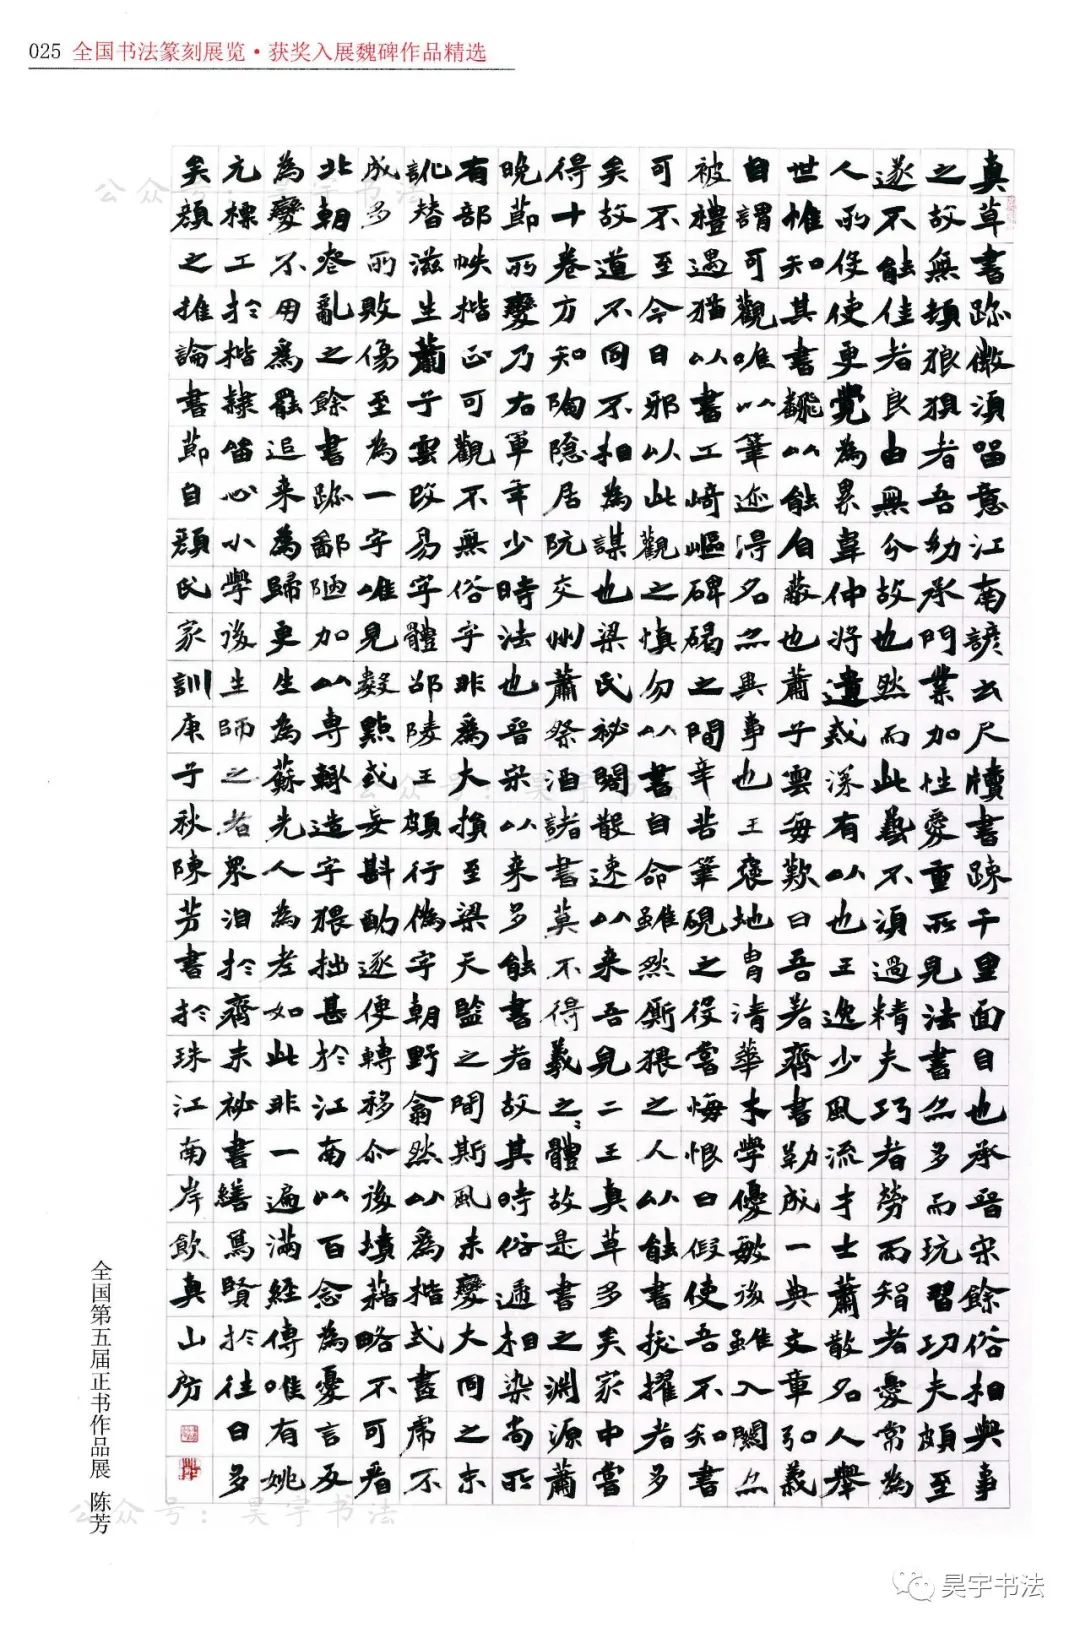 025 全国书法篆刻展览·获奖入展魏碑作品精选
真草書跡微須留意江南諺云尺牘書疎千里面目也承晉宋餘俗相與事
之故無頓狼狽者吾幼承門業加性愛重所見法書亦多而玩習功夫頗至
遂不能佳者良由無分故也然而此藝不須過精夫巧者勞而智者憂常為
人所役使更覺為累韋仲將遺戒深有以也王逸少風流才士蕭散名人舉
世惟知其書翻以能自蔽也蕭子雲每歎曰吾著齊書勒成一典文章弘義
自謂可觀唯以筆迹得名亦異事也王褒地胄清華才學優敏後雖入關亦
被禮遇猶以書工崎嶇碑碣之間辛苦筆硯之役嘗悔恨曰假使吾不知書
可不至今日邪以此觀之慎勿以書自命雖然廝猥之人以能書拔擢者多
矣故道不同不相為謀也梁氏祕閣散逸以来吾見二王真草多矣家中嘗
得十卷方知陶隱居阮交州蕭祭酒諸書莫不得羲之〻體故是書之淵源蕭
晚節所變乃右軍年少時法也晉宋以来多能書者故其時俗遞相染尚所
有部帙楷正可觀不無俗字非為大損至梁天監之間斯風未變大同之末
訛替滋生蕭子雲改易字體邵陵王頗行偽字朝野翕然以為楷式畫虎不
成多所敗傷至為一字唯見數點或妄斟酌逐便轉移尒後墳籍略不可看
北朝喪亂之餘書跡鄙陋加以專輒造字猥拙甚於江南以百念為憂言反
為變不用為罷追来為歸更生為蘇先人為老如此非一遍滿經傳唯有姚
元標工於楷隸留心小學後生師之者眾洎於齊末祕書繕寫賢於往日多
矣顏之推論書節自顏氏家訓庚子秋陳芳書於珠江南岸飲真山房
全国第五届正书作品展 陈芳
公众号：昊宇书法
公众号：昊宇书法
公众号：昊宇书法
昊宇书法